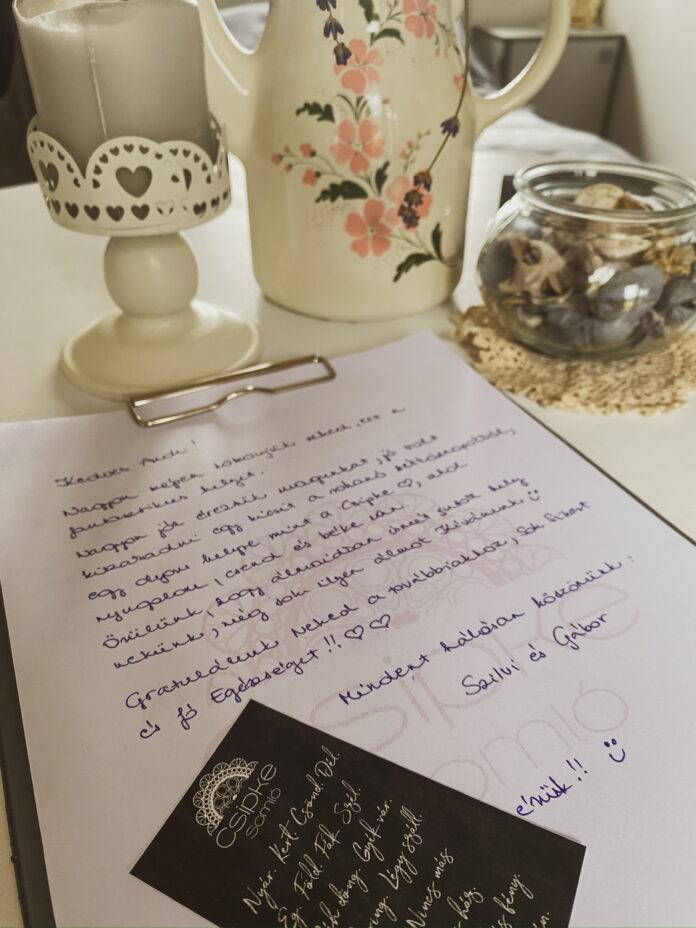 Kedves Andi!
Nagyon szépen köszönjük neked, ezt a
fantasztikus helyet.
Nagyon jól éreztük magunkat, jó volt
kiszaradni egy kicsit a rohanó hétköznapokból,
egy olyan helyre mint a Csipke ♡, ahol
nyugalom, csend és béke van.
Örülünk, hogy álmaidban ismét jutott hely
nekünk, még sok ilyen álmot kívánunk. ☺
Gratulálunk Neked a továbbiakhoz, sok sikert
és jó Egészséget!! ♡♡
Mindent hálásan köszönünk:
Szilvi és Gábor
érünk!! ☺
csipke
somló
CSIPKE
somló
Nyár. Kert. Csend. Dél.
Ég. Föld. Fák. Szél.
döng. Gyík vár.
Légy száll.
Nincs más
ház,
fény